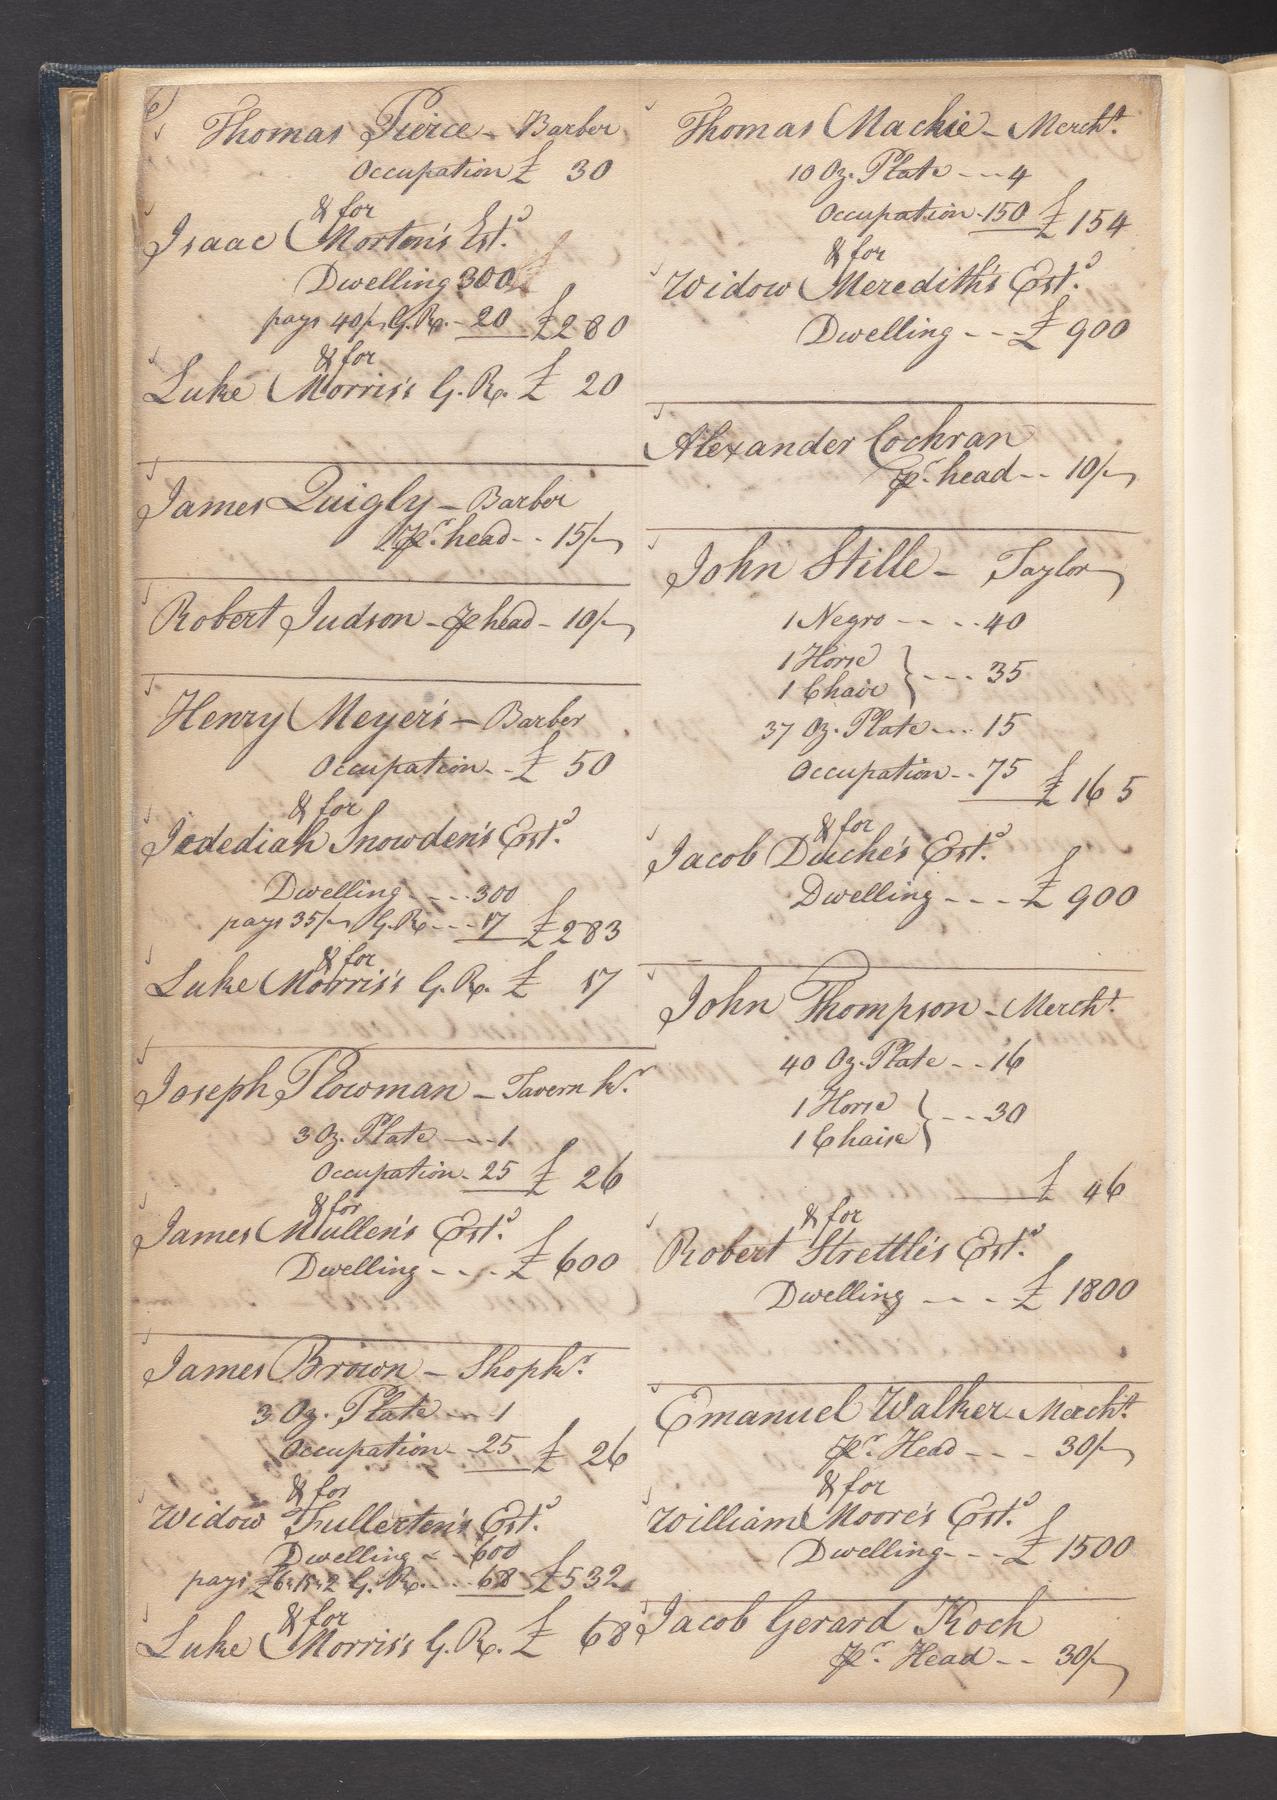 6)
Thomas Pierce - Barber
Occupation £ 30
& for
Isaac Morton's Est.d
Dwelling 300
pays 40/- G.R. - 20 £280
& for
Luke Morris's G.R. £ 20
James Quigly - Barber
pr. head - - 15/-
Robert Judson - p head - 10/-
Henry Meyer's - Barber
Occupation - - £ 50
& for
Jedediah Snowden's Est.d
Dwelling - - - 300
pays 35/- G.R. - - - 17 £283
& for
Luke Morris's G.R. £ 17
Joseph Plowman - Tavern k.r
3 Oz. Plate - - - 1
Occupation - 25 £ 26
& for
James Mullen's Est.d
Dwelling - - - £ 600
James Brown - Shopk.r
3 Oz. Plate - - - 1
Occupation - 25 £ 26
& for
Widow Fullerten's Est.d
Dwelling - - 600
pays £6"15"2 G.R. - - - 68 £532
& for
Luke Morris's G.R. £ 68
Thomas Mackie - Merch.t
10 Oz. Plate - - - 4
Occupation - 150 £154
& for
Widow Meredith's Est.d
Dwelling - - - £ 900
Alexander Cochran
pr. head - - 10/-
John Stille - Taylor
1 Negro - - - - 40
1 Horse
1 Chair } - - - 35
37 Oz. Plate - - - 15
Occupation - - 75 £165
& for
Jacob Duche's Est.d
Dwelling - - - £ 900
John Thompson - Merch.t
40 Oz. Plate - - 16
1 Horse
1 Chaise } - - - 30
£ 46
& for
Robert Strettle's Est.d
Dwelling - - - £ 1800
Emanuel Walker Merch.t
pr. Head - - - 30/-
& for
William Moore's Est.d
Dwelling - - - £ 1500
Jacob Gerard Koch
pr. Head - - 30/-